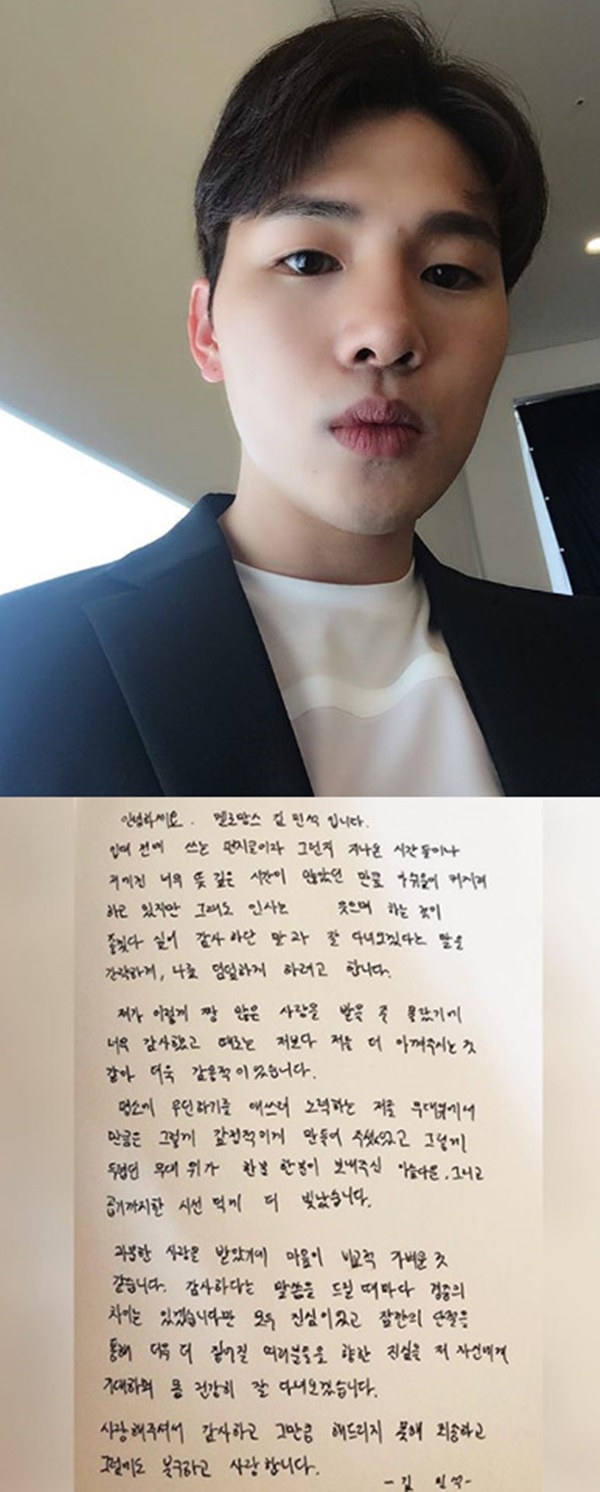 안녕하세요. 멜로망스 김민석 입니다.
입대 전에 쓰는 편지글이라 그런지 지나온 시간들이나
저에겐 너무 뜻 깊은 시간이 많았던 만큼 아쉬움이 커지려
하고 있지만 그래도 인사는 웃으며 하는 것이
좋겠다 싶어 감사하단 말과 잘 다녀오겠다는 말을
간략하게, 나름 덤덤하게 하려고 합니다.
제가 이렇게 많은 사랑을 받을 줄 몰랐기에
너무 감사했고 때로는 저보다 저를 더 아껴주시는 것
같아 더욱 감동적이었습니다.
평소에 무던하기를 애쓰려 노력하는 저를 무대위에서
만큼은 그렇게 감정적이게 만들어 주셨었고 그렇게
두렵던 무대 위가 한분 한분이 보내주신 아름다운, 그리고
시선 덕에 더 빛났습니다.
과분한 사랑을 받았기에 마음이 비교적 가벼운 것
같습니다. 감사하다는 말씀을 드릴 때마다 경중의
차이는 있겠습니다만 모두 진심이었고 잠깐의 단절을
통해 더욱 더 짙어질 여러분들을 향한 진심을 저 자신에게
기대하며 몸 건강히 잘 다녀오겠습니다.
사랑해주셔서 감사하고 그만큼 해드리지 못해 죄송하고
그럼에도 불구하고 사랑합니다.
-김 민석-